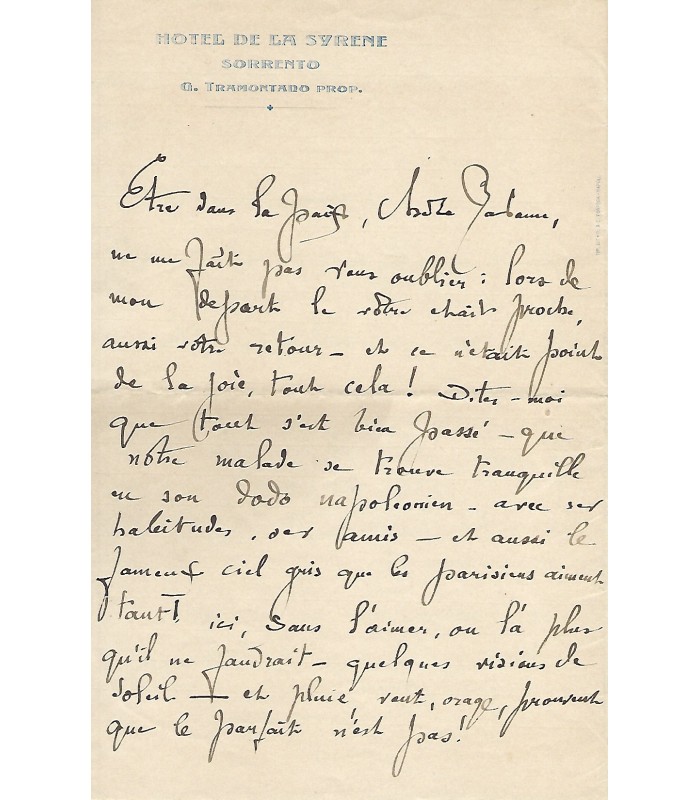 HOTEL DE LA SYRENE
SORRENTO
G. TRAMONTANO PROP.
Etre dans la paix, chère Madame,
ne me fait pas vous oublier : lors de
mon départ le vôtre était proche,
aussi votre retour – et ce n'était point
de la joie, tout cela ! Dites-moi
que tout s'est bien passé – que
notre malade se trouve tranquille
en son dodo napoléonien – avec ses
habitudes, ses amis – et aussi le
fameux ciel gris que les parisiens aiment
tant ! ici, sans l'aimer, on l'a plus
qu'il ne faudrait – quelques visions de
soleil – et pluie, vent, orage, prouvent
que le parfait n'est pas !